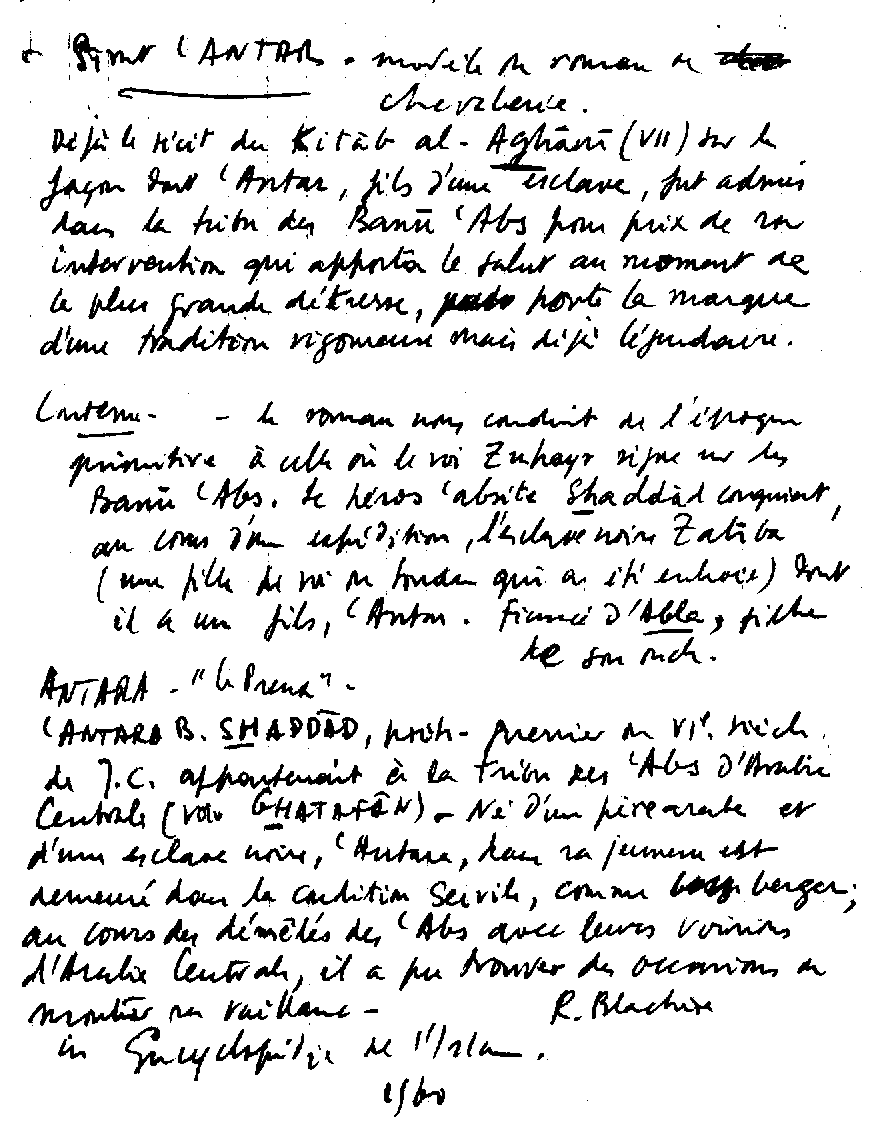 + Sirat ʿANTAR - modèle du roman de
chevalerie.
Déjà le récit du Kitāb al-Aghānī (VII) sur la
façon dont ʿAntar, fils d'une esclave, fut admis
dans la tribu des Banū ʿAbs pour prix de son
intervention qui apporta le salut au moment de
la plus grande détresse, porte la marque
d'une tradition vigoureuse mais déjà légendaire.
Contenu - - le roman nous conduit de l'époque
primitive à celle où le roi Zuhayr règne sur les
Banū ʿAbs. Le héros ʿabsite Shaddād conquiert,
au cours d'une expédition, l'esclave noire Zabiba
(une fille de roi du Soudan qui a été enlevée) dont
il a un fils, ʿAntar. Fiancé d'Abla, fille
de son oncle.
ANTARA - "le Preux" -
ʿANTARA B. SHADDĀD, poète-guerrier du VIe. siècle
de J.C. appartenant à la tribu des ʿAbs d'Arabie
Centrale (voir GHATAFĀN) - Né d'un père arabe et
d'une esclave noire, ʿAntara, dans sa jeunesse est
demeuré dans la condition servile, comme berger;
au cours des démêlés des ʿAbs avec leurs voisins
d'Arabie Centrale, il a pu trouver des occasions de
montrer sa vaillance -
R. Blachère
in Encyclopédie de l'Islam.
1960